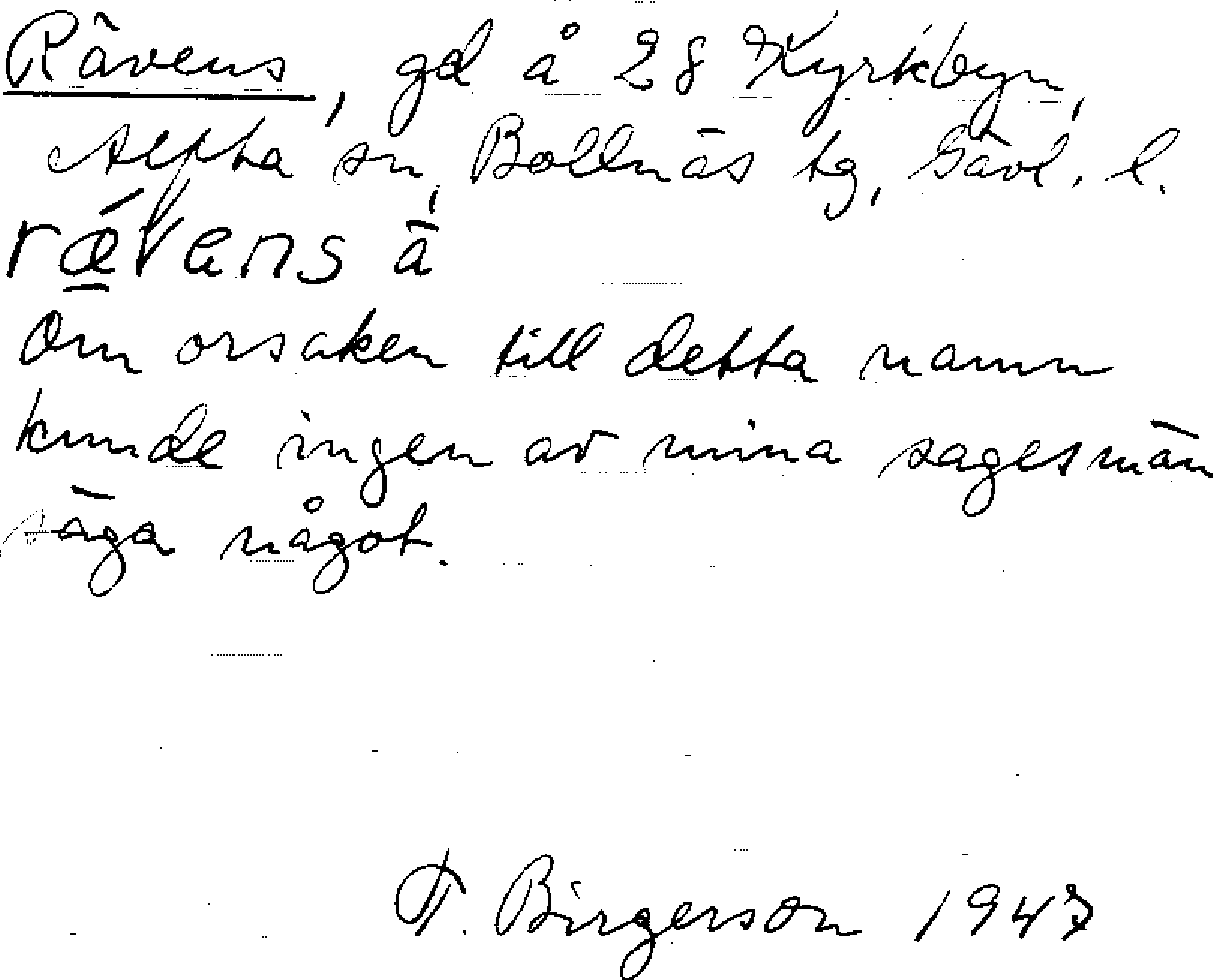 Rävens, gd å 28 Kyrkbyn,
Alfta sn, Bollnäs tg, Gävl. l.
rǽvens ä
Om orsaken till detta namn
kunde ingen av mina sagesmän
säga något.
F. Birgerson 1947